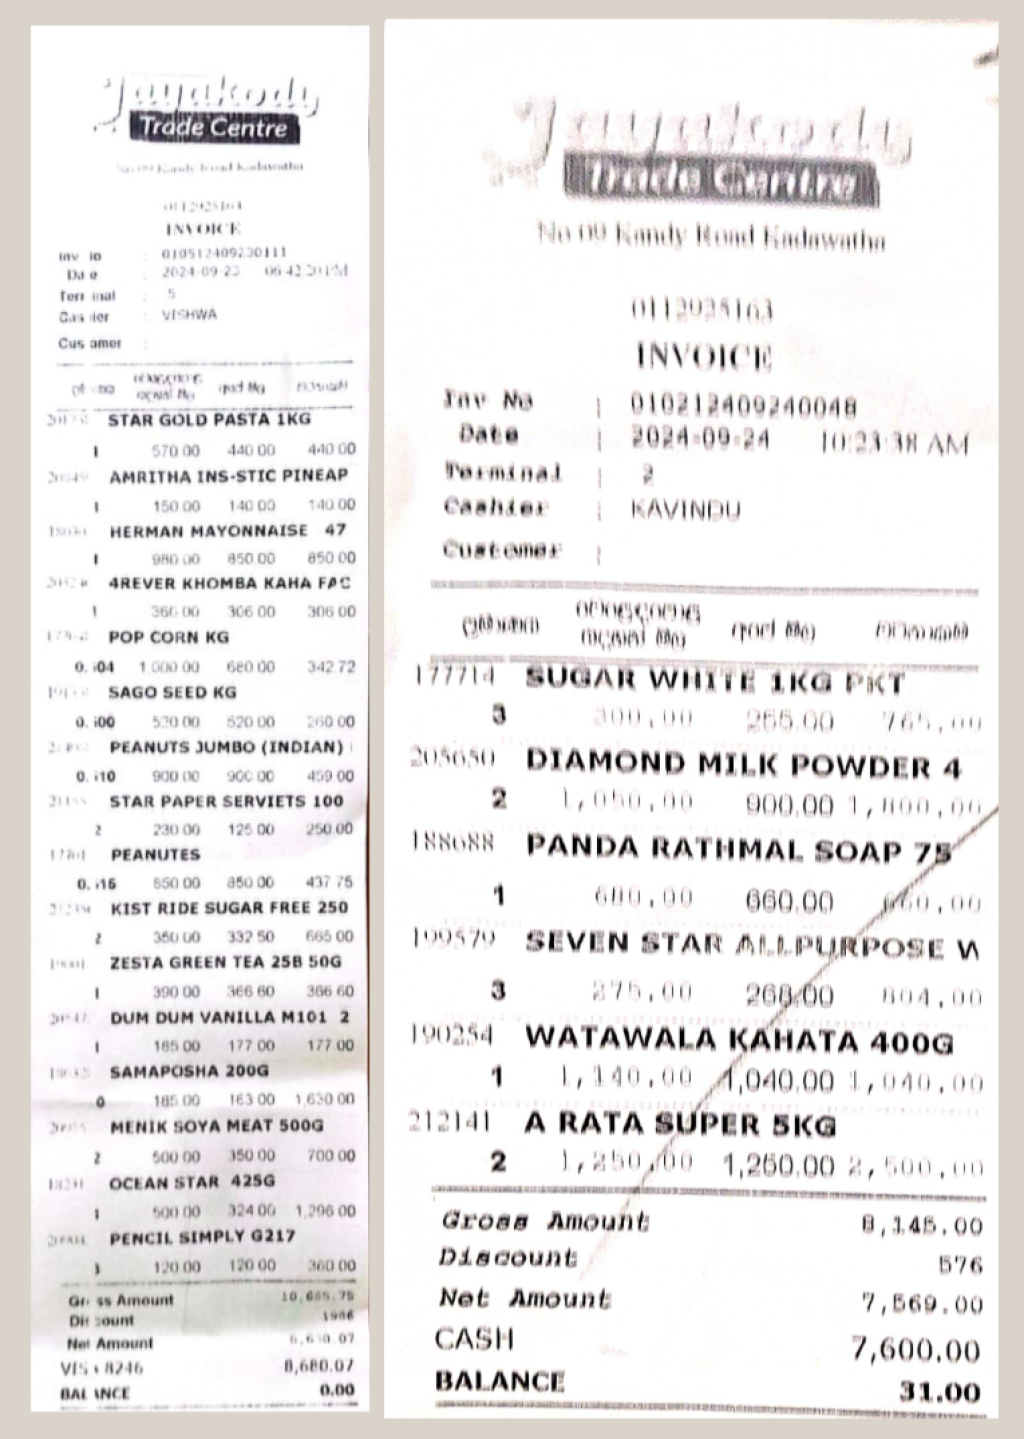 Jayakody
Trade Centre
No 09 Kandy Road Kadawatha
INVOICE
010512409230111
2024-09-23
5
VISHWA
Cus omer
STAR GOLD PASTA 1KG
1 570 00 440 00 440 00
AMRITHA INS-STIC PINEAP
1 150 00 140 00 140 00
HERMAN MAYONNAISE 47
1 980 00 850 00 850 00
4REVER KHOMBA KAHA FAC
1 360 00 306 00 306 00
POP CORN KG
1 000 00 680 00 342 72
SAGO SEED KG
520 00 520 00 260 00
PEANUTS JUMBO (INDIAN)
900 00 900 00 459 00
STAR PAPER SERVIETS 100
2 230 00 125 00 250 00
PEANUTES
850 00 850.00 437 75
KIST RIDE SUGAR FREE 250
2 350 00 332 50 665 00
ZESTA GREEN TEA 25B 50G
1 390 00 366 60 366 60
DUM DUM VANILLA M101 2
1 185 00 177 00 177 00
SAMAPOSHA 200G
0 185 00 163 00 1,630 00
MENIK SOYA MEAT 500G
2 500 00 350 00 700 00
OCEAN STAR 425G
500 00 324 00 1,296 00
PENCIL SIMPLY G217
120 00 120 00 360 00
Amount
Amount
8246 8,680.07
0.00
Jayakody
Trade Centre
No 09 Kandy Road Kadawatha
0112925163
INVOICE
Inv No | 010212409240048
Date | 2024-09-24 10:23:38 AM
Terminal | 2
Cashier | KAVINDU
Customer |
177714 SUGAR WHITE 1KG PKT
3 300.00 255.00 765.00
205650 DIAMOND MILK POWDER 4
2 1,050.00 900.00 1,800.00
188688 PANDA RATHMAL SOAP 75
1 680.00 660.00 660.00
199579 SEVEN STAR ALLPURPOSE W
3 275.00 268.00 804.00
190254 WATAWALA KAHATA 400G
1 1,140.00 1,040.00 1,040.00
212141 A RATA SUPER 5KG
2 1,250.00 1,250.00 2,500.00
Gross Amount 8,145.00
Discount 576
Net Amount 7,569.00
CASH 7,600.00
BALANCE 31.00